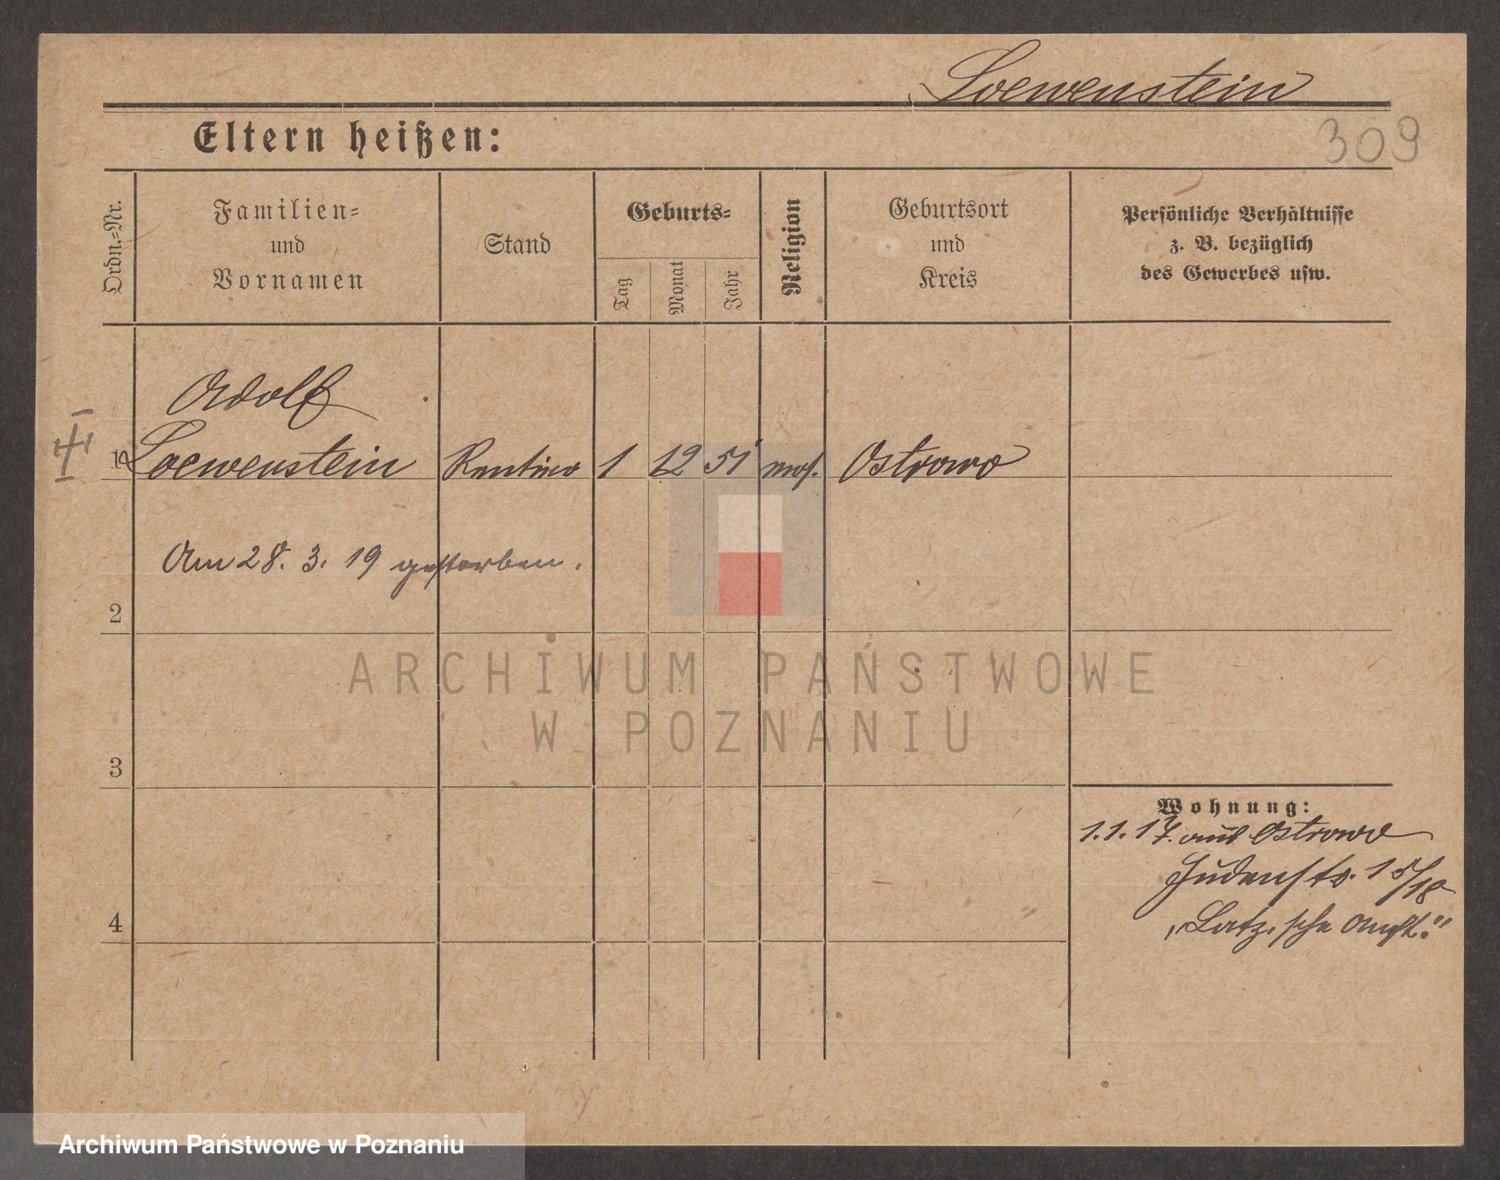 Loewenstein
309
Eltern heißen:
Ordn.-Nr.
Familien-
und
Vornamen
Stand
Geburts-
Tag
Monat
Jahr
Religion
Geburtsort
und
Kreis
Persönliche Verhältnisse
z. B. bezüglich
des Gewerbes usw.
Adolf
1 Loewenstein Rentier 1 12 51 mos. Ostrowo
Am 28. 3. 19 gestorben.
2
3
4
Wohnung:
1.1.17. aus Ostrowo
Judenstr. 15/18
„Latz'sche Anst."
ARCHIWUM PAŃSTWOWE
W POZNANIU
Archiwum Państwowe w Poznaniu